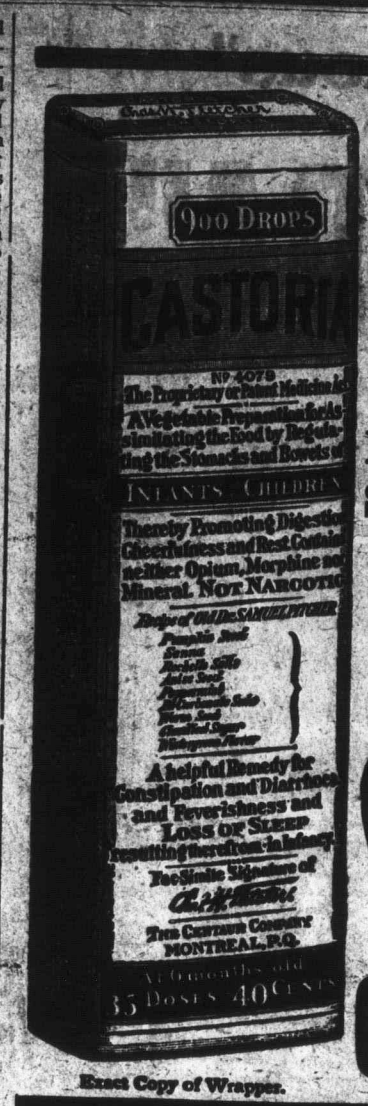 Chas. H. Fletcher
900 DROPS
CASTORIA
No 4079
The Proprietary or Patent Medicine Act
A Vegetable Preparation for As-
similating the Food by Regula-
ting the Stomachs and Bowels of
INFANTS CHILDREN
Thereby Promoting Digestion
Cheerfulness and Rest. Contains
neither Opium, Morphine nor
Mineral. NOT NARCOTIC
Recipe of Old Dr. SAMUEL PITCHER
Pumpkin Seed
Senna
Rochelle Salts
Anise Seed
Peppermint
Worm Seed
Clarified Sugar
Wintergreen Flavor
A helpful Remedy for
Constipation and Diarrhoea
and Feverishness and
LOSS OF SLEEP
resulting therefrom in Infancy.
Fac Simile Signature of
Chas. H. Fletcher
THE CENTAUR COMPANY
MONTREAL, P.Q.
At 6 months old
35 DOSES 40 CENTS
Exact Copy of Wrapper.